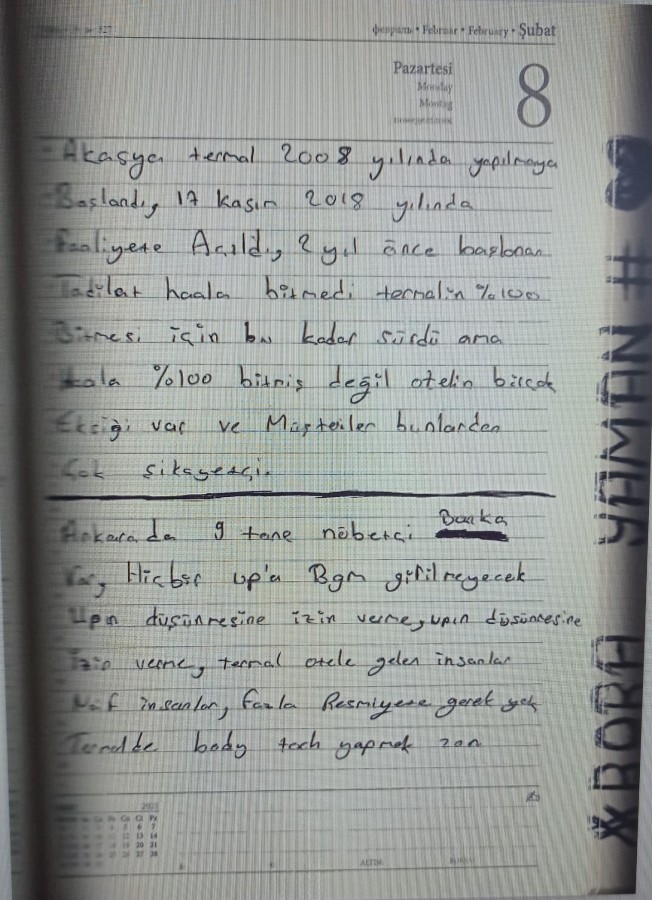 февраль • Februar • February • Şubat
Pazartesi
Monday
Montag
8
Akasya termal 2008 yılında yapılmaya
Başlandı, 17 Kasım 2018 yılında
Faaliyete Açıldı, 2 yıl önce başlanan
Tadilat haala bitmedi termalin %100
Bitmesi için bu kadar sürdü ama
Hala %100 bitmiş değil otelin birçok
Eksiği var ve Müşteriler bunlardan
Çok şikayetçi.
Ankara da 9 tane nöbetçi Banka
Var, Hiçbir up'a Bgm girilmeyecek
Upın düşünmesine izin verme, upın düşüncesine
İzin verme, termal otele gelen insanlar
Naif insanlar, fazla Resmiyete gerek yok
Termalde body toch yapmak zor
2021
ALTIN
*BORA YAMAN #